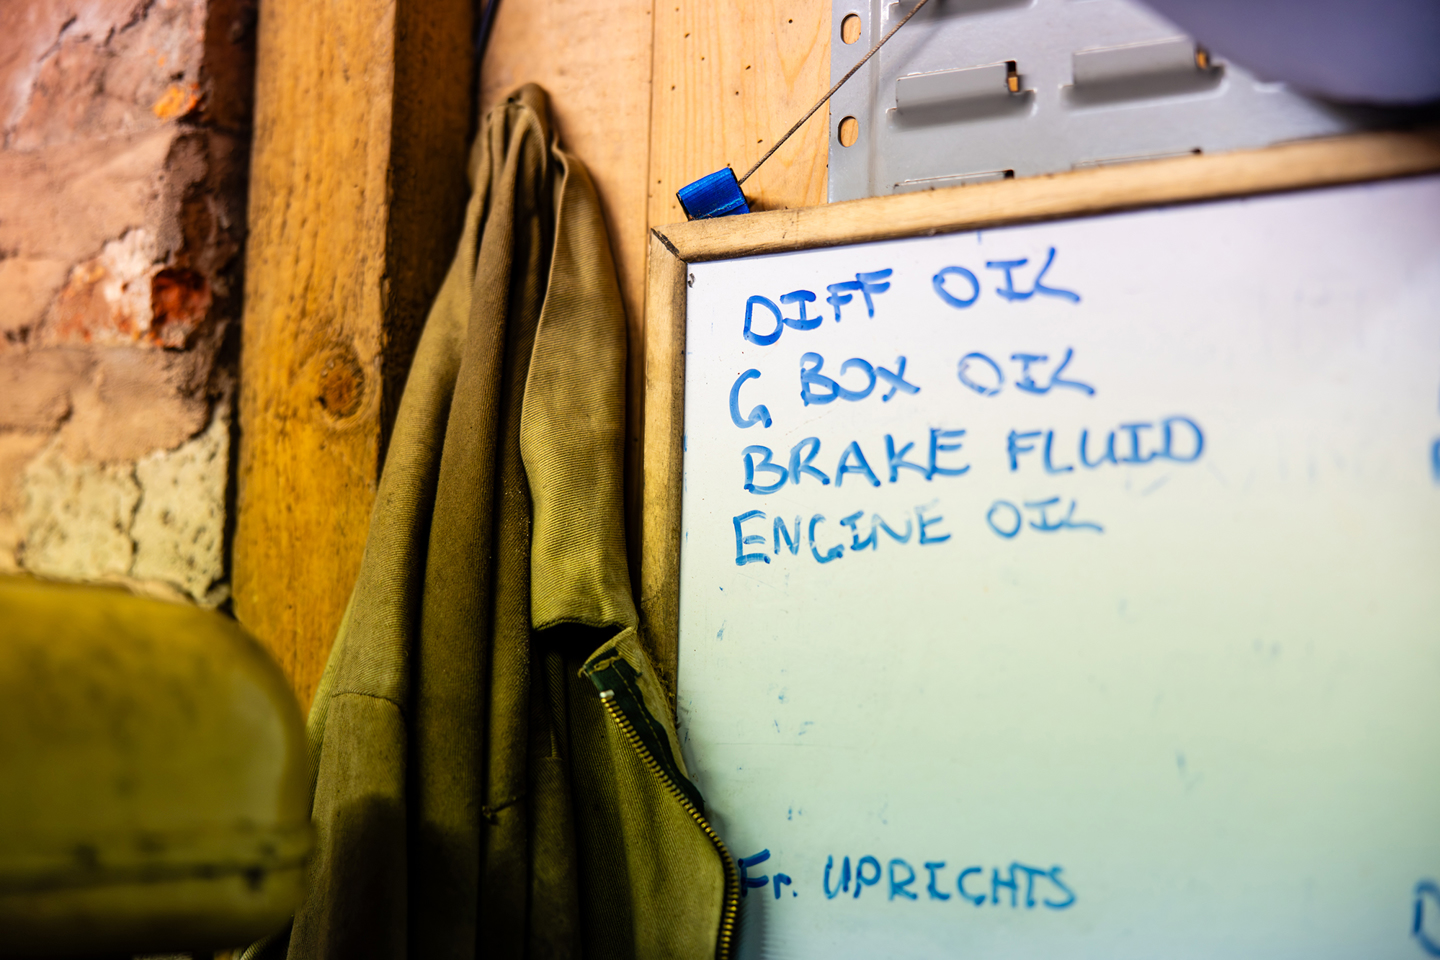 DIFF OIL
G BOX OIL
BRAKE FLUID
ENGINE OIL
Fr. UPRIGHTS